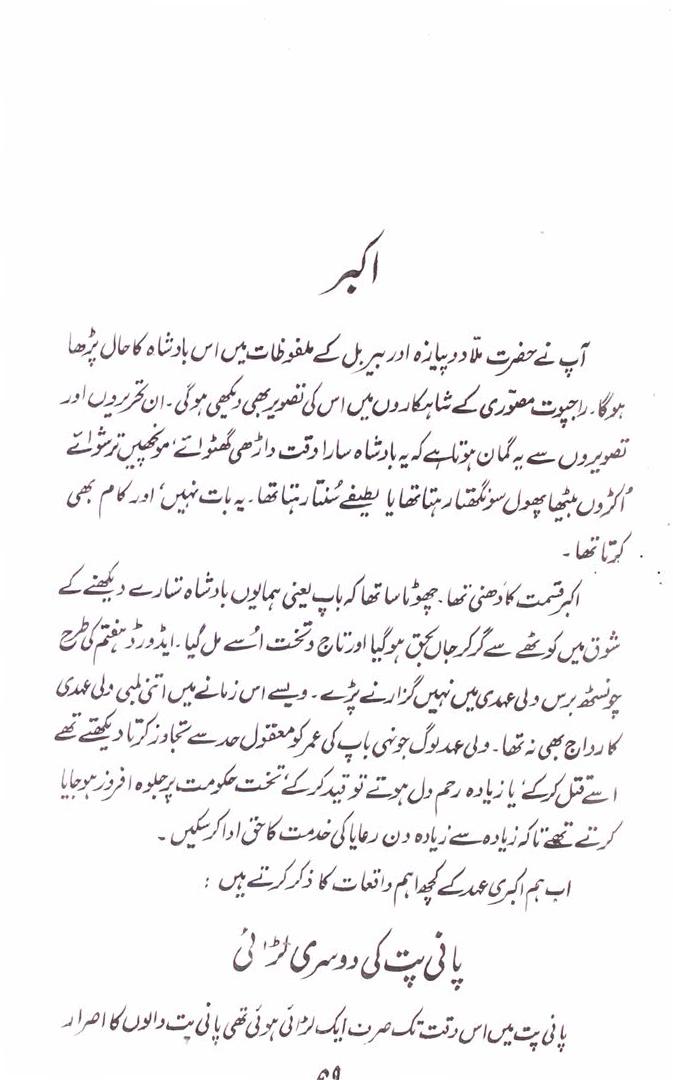 اکبر
آپ نے حضرت ملّا دوپیازہ اور بیربل کے ملفوظات میں اس بادشاہ کا حال پڑھا
ہوگا۔ راجپوت مصوّری کے شاہکاروں میں اس کی تصویر بھی دیکھی ہوگی۔ ان تحریروں اور
تصویروں سے یہ گمان ہوتا ہے کہ یہ بادشاہ سارا وقت داڑھی گھٹوائے، مونچھیں ترشوائے
اُکڑوں بیٹھا پھول سونگھتا رہتا تھا یا لطیفے سُنتا رہتا تھا۔ یہ بات نہیں، اور کام بھی
کرتا تھا۔
اکبر قسمت کا دھنی تھا۔ چھوٹا سا تھا کہ باپ یعنی ہمایوں بادشاہ ستارے دیکھنے کے
شوق میں کوٹھے سے گر کر جاں بحق ہوگیا اور تاج و تخت اُسے مل گیا۔ ایڈورڈ ہفتم کی طرح
چونسٹھ برس ولی عہدی میں نہیں گزارنے پڑے۔ ویسے اس زمانے میں اتنی لمبی ولی عہدی
کا رواج بھی نہ تھا۔ ولی عہد لوگ جونہی باپ کی عمر کو معقول حد سے تجاوز کرتا دیکھتے تھے
اسے قتل کرکے، یا زیادہ رحم دل ہوتے تو قید کرکے، تخت حکومت پر جلوہ افروز ہو جایا
کرتے تھے تاکہ زیادہ سے زیادہ دن رعایا کی خدمت کا حق ادا کرسکیں۔
اب ہم اکبری عہد کے کچھ اہم واقعات کا ذکر کرتے ہیں :
پانی پت کی دوسری لڑائی
پانی پت میں اس وقت تک صرف ایک لڑائی ہوئی تھی پانی پت والوں کا اصرار